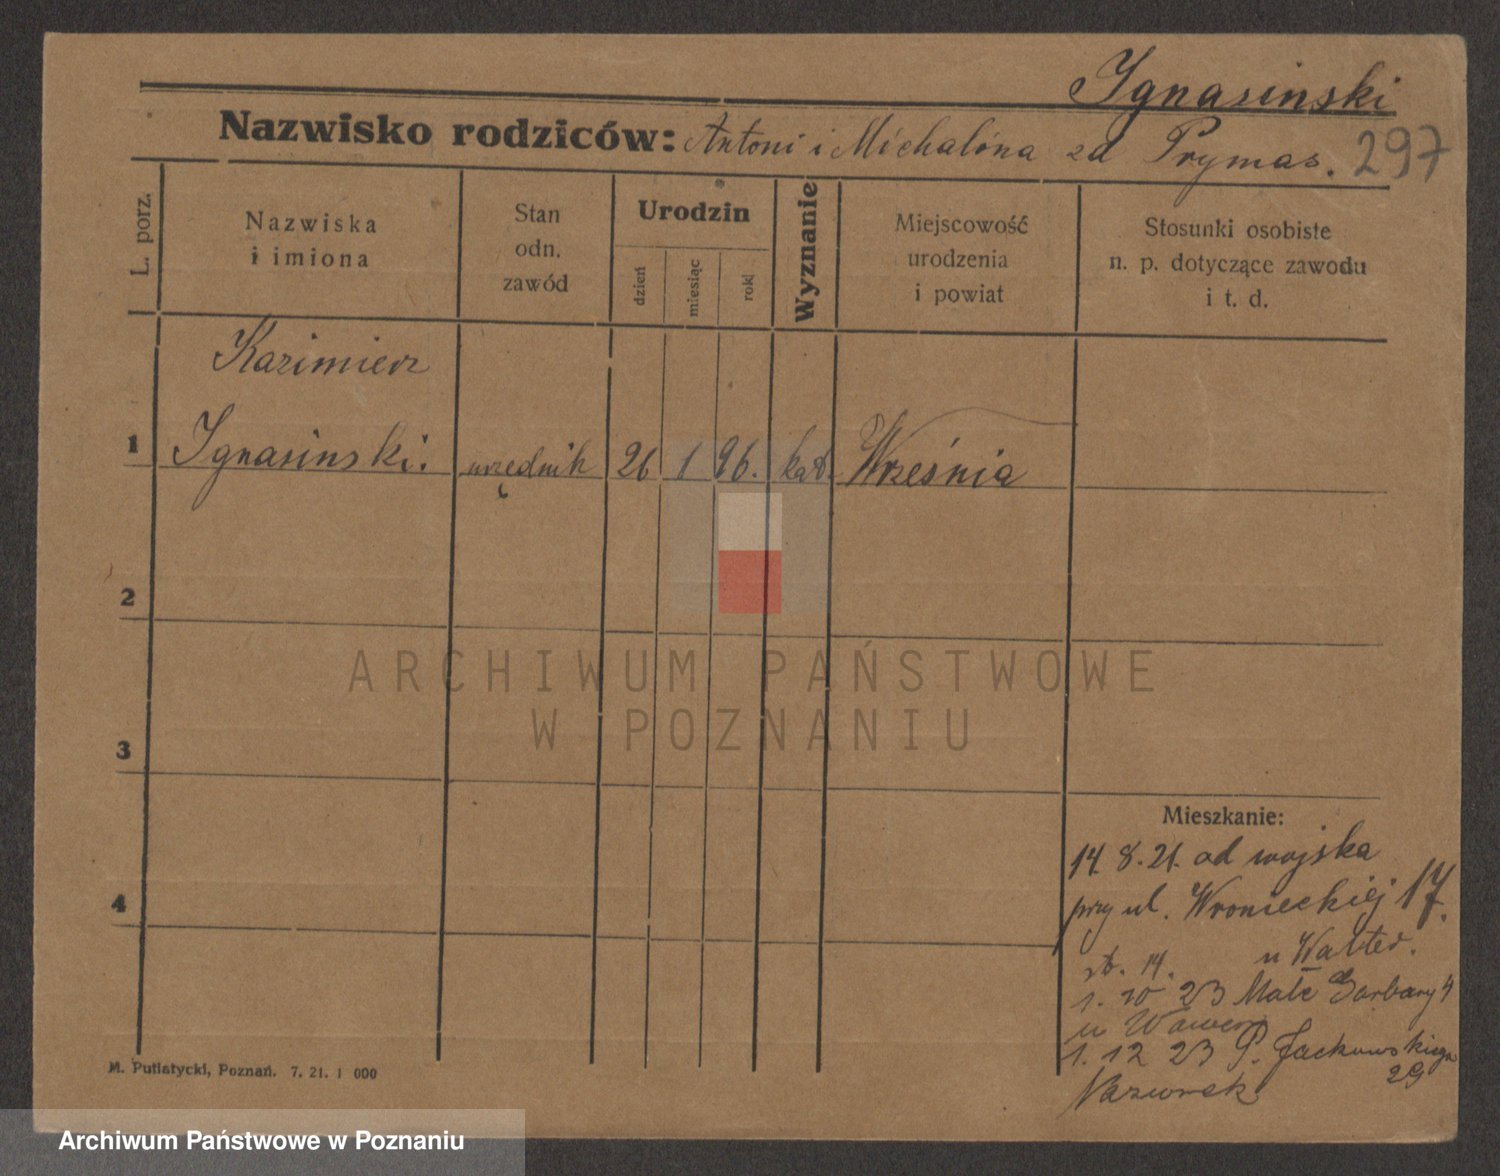 Ignasinski
Nazwisko rodziców: Antoni i Michalina zd Prymas. 297
L. porz.
Nazwiska
i imiona
Stan
odn.
zawód
Urodzin
dzień
miesiąc
rok
Wyznanie
Miejscowość
urodzenia
i powiat
Stosunki osobiste
n. p. dotyczące zawodu
i t. d.
Kazimierz
1 Ignasinski. urzędnik 26 1 96. kat. Września
2
ARCHIWUM PAŃSTWOWE
W POZNANIU
3
4
Mieszkanie:
14. 8. 21. od wojska
przy ul. Wronieckiej 17.
14. u Walter.
1. 10 23 Małe Garbary 4
u
1. 12 23 P. Jackowskiego
29
M. Putiatycki, Poznań. 7. 21. 1 000
Archiwum Państwowe w Poznaniu